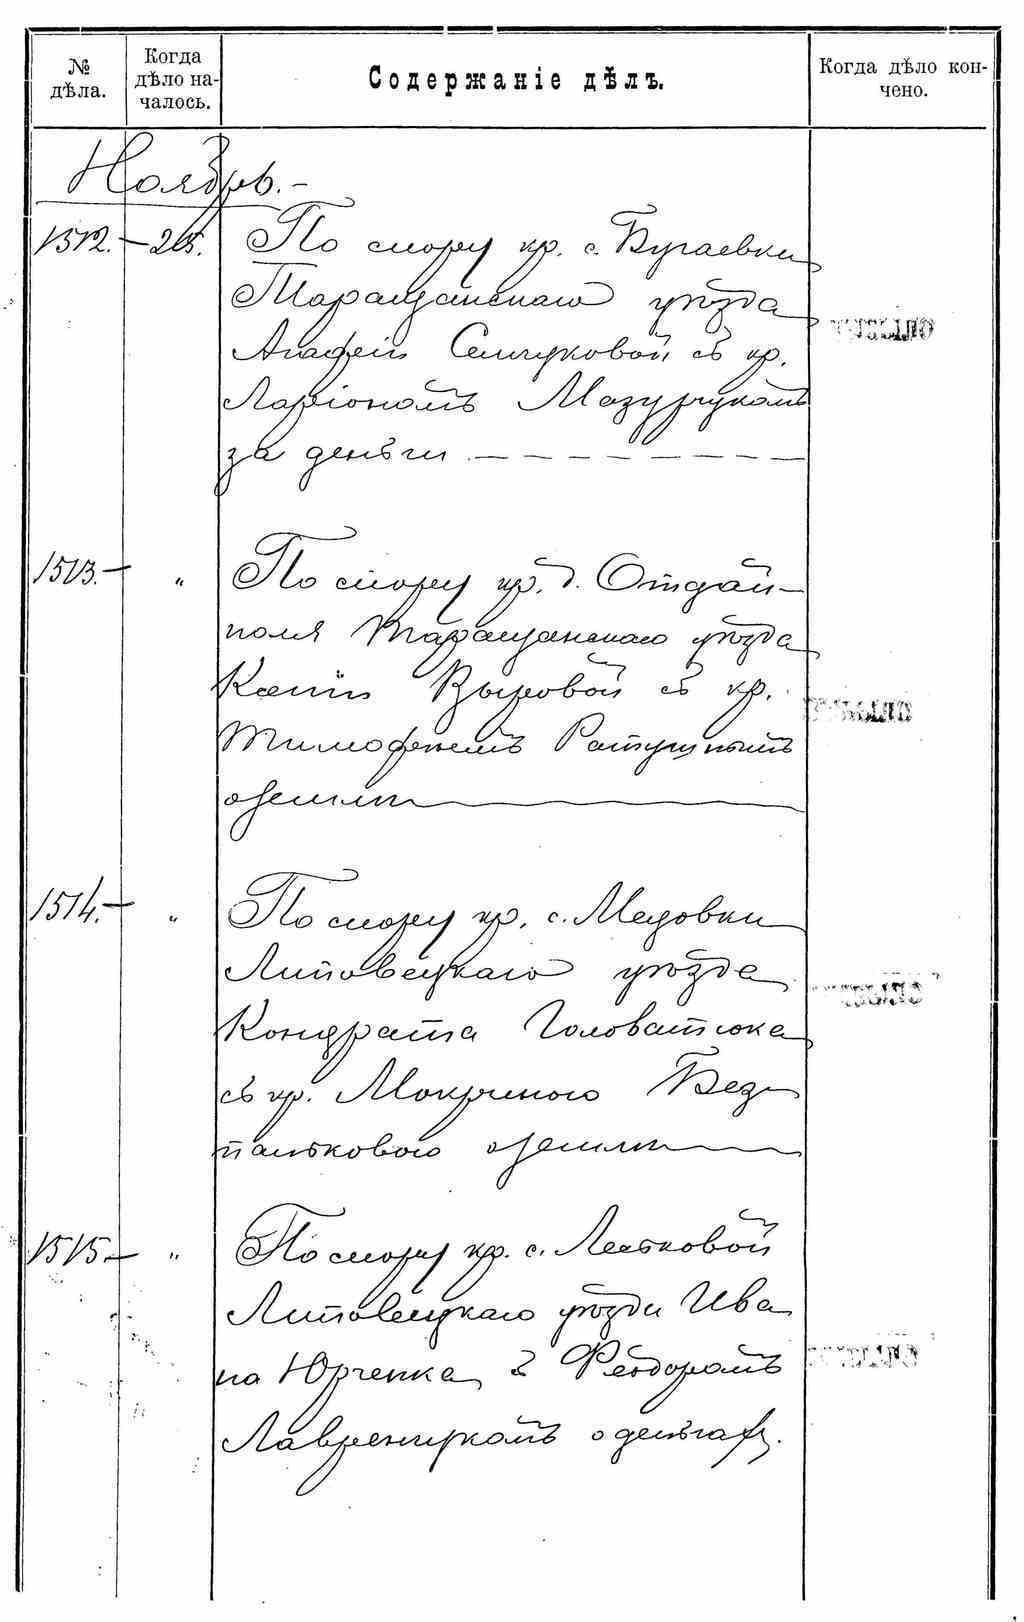 № дѣла.
Когда дѣло на-
чалось.
Содержаніе дѣлъ.
Когда дѣло кон-
чено.
Ноябрь.-
1512. - 25. По спору кр. с. Бугаевки
Таращанскаго уѣзда
Агафіи Семчуковой съ кр.
Ларіономъ Мазурчукомъ
за деньги
1513. - " По спору кр. д. Отдай-
поля Таращанскаго уѣзда
Ксеніи Выровой съ кр.
Тимофеемъ Ратушнымъ
о земли
1514. - " По спору кр. с. Медовки
Липовецкаго уѣзда
Кондрата Головатюка
съ кр. Мокриною Без-
пальковою о земли
1515. - " По спору кр. с.
Липовецкаго уѣзда Ива
на Юрченка съ Феодоромъ
Лавренчукомъ о деньгах.